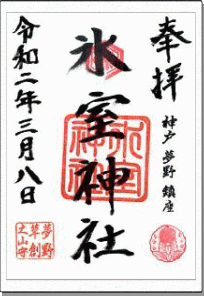 奉拝
神戸 夢野 鎮座
氷室神社
氷室神社
令和二年三月八日
夢野
草創
之山守